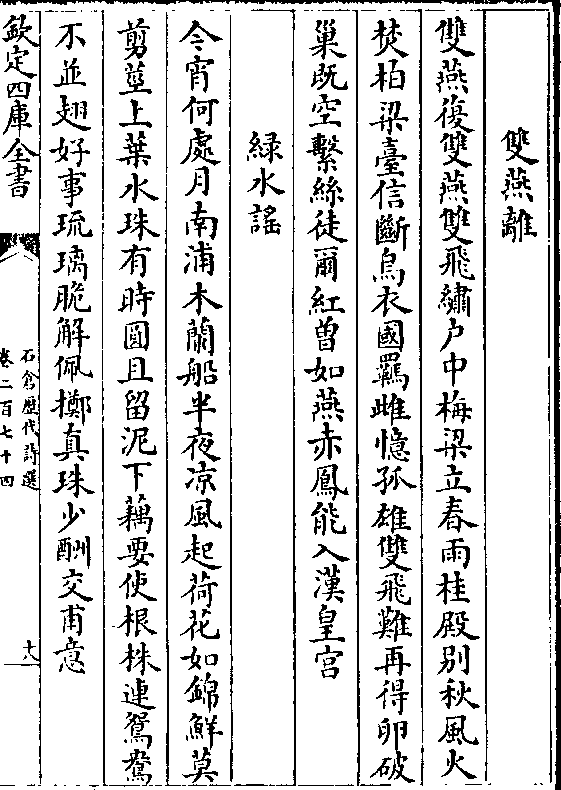 雙燕離
雙燕復雙燕雙飛繡户中梅梁立春雨桂殿别秋風火
焚柏梁臺信斷烏衣國羈雌憶孤雄雙飛難再得卵破
巢既空繫絲徒爾紅曽如燕赤鳳能入漢皇宫
緑水謡
今宵何處月南浦木蘭船半夜凉風起荷花如錦鮮莫
剪莖上葉水珠有時圓且留泥下藕要使根株連鴛鴦
不並翅好事琉璃脆解佩擲真珠少酬交甫意
欽定四庫全書
石倉歷代詩選
卷二百七十四
十八